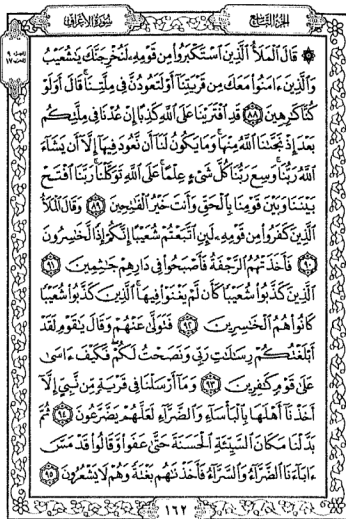 سورة الأعراف
الجزء التاسع
۞ قَالَ الْمَلَأُ الَّذِينَ اسْتَكْبَرُوا مِن قَوْمِهِ لَنُخْرِجَنَّكَ يَٰشُعَيْبُ
وَالَّذِينَ ءَامَنُوا مَعَكَ مِن قَرْيَتِنَا أَوْ لَتَعُودُنَّ فِي مِلَّتِنَا قَالَ أَوَلَوْ
كُنَّا كَٰرِهِينَ ٨٨ قَدِ افْتَرَيْنَا عَلَى اللَّهِ كَذِبًا إِنْ عُدْنَا فِي مِلَّتِكُم
بَعْدَ إِذْ نَجَّىٰنَا اللَّهُ مِنْهَا وَمَا يَكُونُ لَنَا أَن نَّعُودَ فِيهَا إِلَّا أَن يَشَاءَ
اللَّهُ رَبُّنَا وَسِعَ رَبُّنَا كُلَّ شَيْءٍ عِلْمًا عَلَى اللَّهِ تَوَكَّلْنَا رَبَّنَا افْتَحْ
بَيْنَنَا وَبَيْنَ قَوْمِنَا بِالْحَقِّ وَأَنتَ خَيْرُ الْفَٰتِحِينَ ٨٩ وَقَالَ الْمَلَأُ
الَّذِينَ كَفَرُوا مِن قَوْمِهِ لَئِنِ اتَّبَعْتُمْ شُعَيْبًا إِنَّكُمْ إِذًا لَّخَٰسِرُونَ
٩٠ فَأَخَذَتْهُمُ الرَّجْفَةُ فَأَصْبَحُوا فِي دَارِهِمْ جَٰثِمِينَ ٩١
الَّذِينَ كَذَّبُوا شُعَيْبًا كَأَن لَّمْ يَغْنَوْا فِيهَا الَّذِينَ كَذَّبُوا شُعَيْبًا
كَانُوا هُمُ الْخَٰسِرِينَ ٩٢ فَتَوَلَّىٰ عَنْهُمْ وَقَالَ يَٰقَوْمِ لَقَدْ
أَبْلَغْتُكُمْ رِسَٰلَٰتِ رَبِّي وَنَصَحْتُ لَكُمْ فَكَيْفَ ءَاسَىٰ
عَلَىٰ قَوْمٍ كَٰفِرِينَ ٩٣ وَمَا أَرْسَلْنَا فِي قَرْيَةٍ مِّن نَّبِيٍّ إِلَّا
أَخَذْنَا أَهْلَهَا بِالْبَأْسَاءِ وَالضَّرَّاءِ لَعَلَّهُمْ يَضَّرَّعُونَ ٩٤ ثُمَّ
بَدَّلْنَا مَكَانَ السَّيِّئَةِ الْحَسَنَةَ حَتَّىٰ عَفَوا وَّقَالُوا قَدْ مَسَّ
ءَابَاءَنَا الضَّرَّاءُ وَالسَّرَّاءُ فَأَخَذْنَٰهُم بَغْتَةً وَهُمْ لَا يَشْعُرُونَ ٩٥
١٦٢